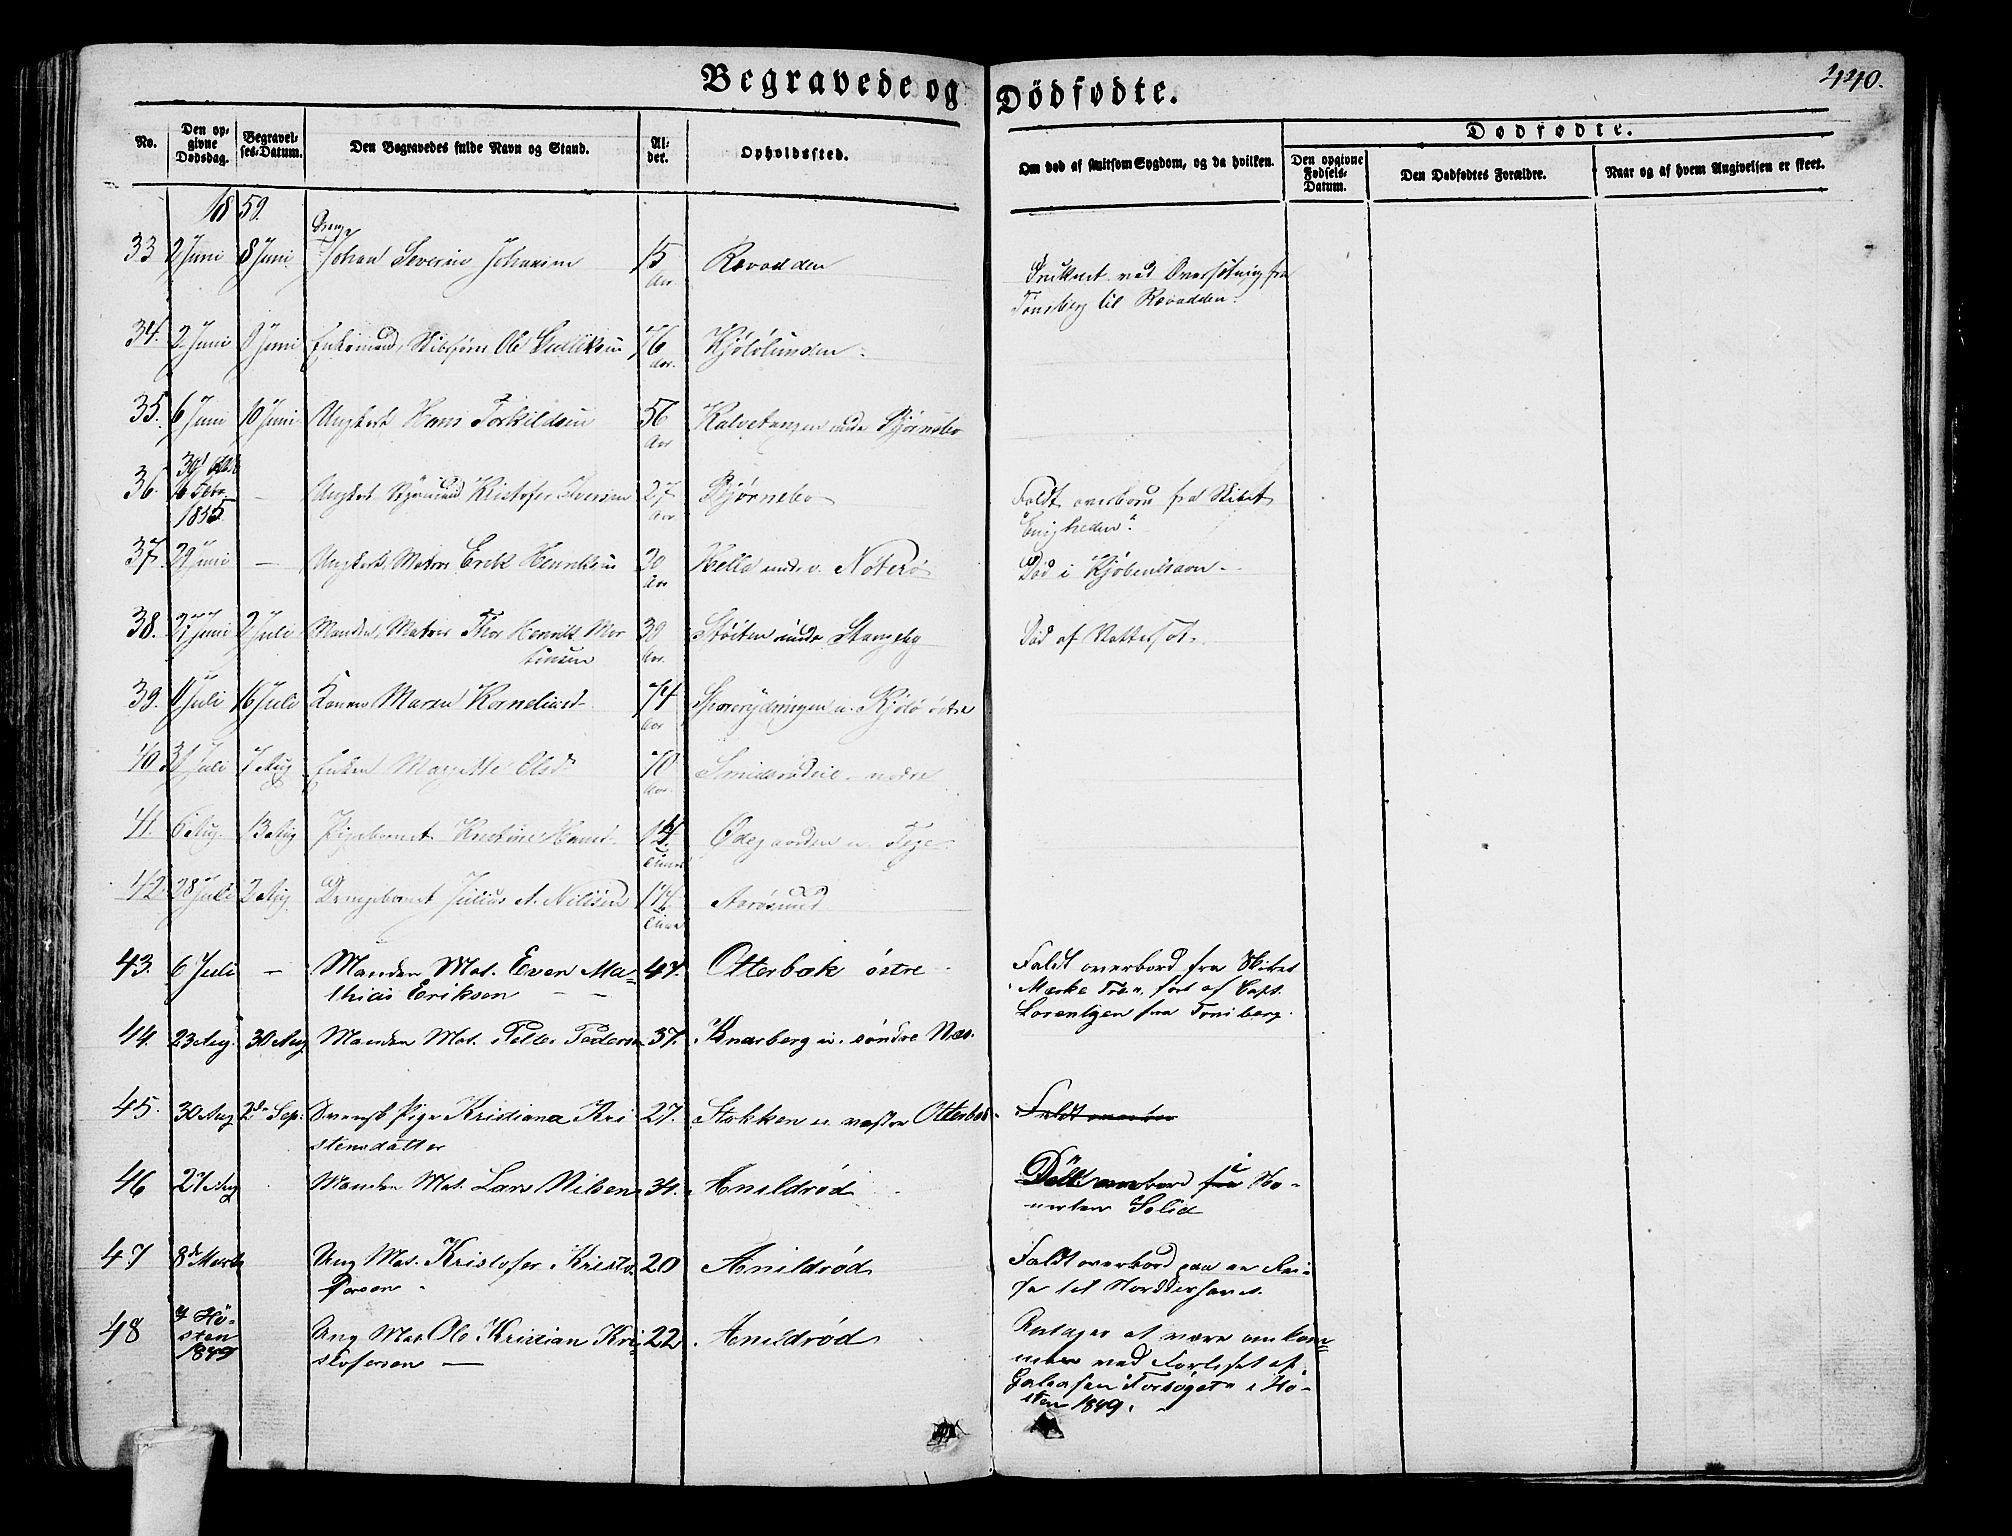 Begravede og Dödfødte.
440.
No. Den opgivne Dødsdag. Begravelses-Datum. Den Begravedes fulde Navn og Stand. Alder. Opholdssted. Om død af smitsom Sygdom, og da hvilken. Dødfødte. Den opgivne Fødsels-Datum. Den Dødfødtes Forældre. Naar og af hvem Angivelsen er skeet.
1859.
Dreng
33 2 Juni 8 Juni Johan Severin Johansen 15 Aar Druknet ved Overfötning fra
Tönsberg til
34. 2 Juni 9 Juni Enkemand, Ole 76 Aar.
35. 6 Juni 10 Juni Ungkarl Hans Torkildsen 56 Aar Kalvetangen under Bjørnebo
36. 16 Febr. 1855 — Ungkarl Kristofer Iversen 27 Aar Bjørnebo Faldt overbord fra Skibet
"Enigheden".
37. 29 Juni — Ungkarl, Matros Erik Henriksen 30 Aar Hella under Nöterö Död i Kjöbenhavn.
38. 27 Juni 2 Juli Manden, Matros Thor Henrik Mortinsen 39 Aar. Stöiten under Stangeby Död af Vattersot.
39. 11 Juli 16 Juli Konen Maren Korneliusd. 74 Aar
40 31 Juli 7 Aug Enken Margrette Olsd 70 Aar. Smidsrödeie nedre
41. 6 Aug. 13 Aug Pigebarnet Kristine Hansd. 14 Ødegaarden u. Teie
42. 28 Juli 2 Aug. Drengebarnet Julius A. Nilsen 14 Aarösund
43. 6 Juli — Manden Mat. Even Ma-
thias Eriksen — — 47. Otterbæk östre Faldt overbord fra Skibet
"Mærke Træ", fört af Capt.
Lorentzen fra Tönsberg.
44. 23 Aug. 30 Aug Manden Mat. Peder Pedersen 37. Knarberg u. söndre Næs.
45. 30 Aug 2de Sep. Svensk Pige Kristiana Kri
stensdatter 27. Stokken u. vestre Otterbæk Faldt overbor
46 27 Aug Manden Mat. Lars Nilsen 34. Arnildröd Död ombord i
Solid
47 8de Marts Ung Mat. Kristofer Kristo-
fersen 20 Arnildröd Faldt overbord paa en Rei-
se til Nordderhavet.
48 Hö-
sten
1849 Ung Mat. Ole Kristian Kri-
stofersen — 22 Arnildröd Antages at være omkom-
men ved Forliset af
Galeasen "Forsöget" i Hö-
sten 1849.